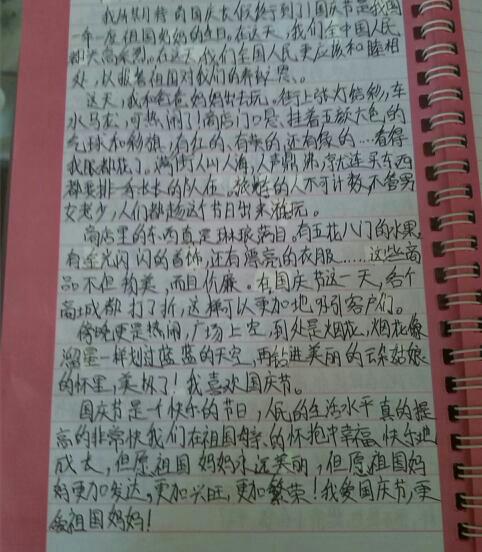 我所期待的国庆长假终于到了!国庆节是我国
一年一度祖国妈妈的生日,在这天,我们全中国人民
都大高采烈。在这天,我们全国人民更应该和睦相
处,以报答祖国对我们的养育之恩。
这天,我和爸爸妈妈出去玩。街上张灯结彩,车
水马龙,可热闹了!商店门口是,挂着五颜六色的
气球和彩旗,有红的、有黄的还有绿的……看得
我眼都花了。满街人山人海,人声鼎沸,就连买东西
都要排着长长的队伍。旅游的人不可计数,不管男
女老少,人们都趁这个节日出来游玩。
商店里的东西真是琳琅满目。有五花八门的水果,
有金光闪闪的首饰,还有漂亮的衣服……这些商
品不但物美,而且价廉。在国庆节这一天,各个
商城都打了折,这样可以更加地吸引客户们。
傍晚更是热闹,广场上空,到处是烟花,烟花像
溜星一样划过蓝蓝的天空,再钻进美丽的云朵姑娘
的怀里,美极了!我喜欢国庆节。
国庆节是个快乐的节日,人民的生活水平真的提
高的非常快我们在祖国母亲的怀抱中幸福、快乐地
成长,但愿祖国妈妈永远美丽,但愿祖国妈
妈更加发达,更加兴旺,更加繁荣!我爱国庆节,更
爱祖国妈妈!